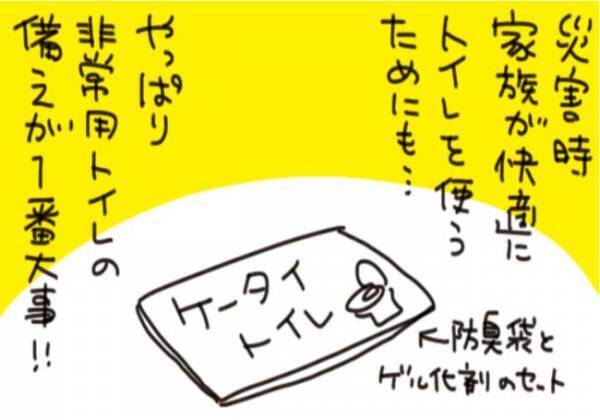 災害時
家族が快適に
トイレを使う
ためにも…
やっぱり
非常用トイレの
備えが1番大事!!
ケータイ
トイレ
←防臭袋と
ゲル化剤のセット